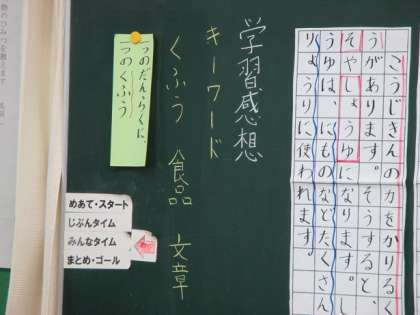 こうじきんの力をかりるく
うがあります。そうすると、
そやしょうゆになります。し
うゆは、にものなどたくさん
りょうりに使われます。
学習感想
キーワード
くふう 食品 文章
一つのだんらくに、
一つのくふう
めあて・スタート
じぶんタイム
みんなタイム
まとめ・ゴール